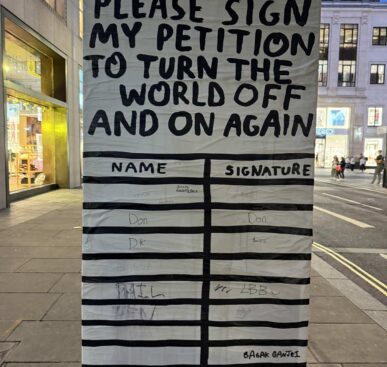 PLEASE SIGN
MY PETITION
TO TURN THE
WORLD OFF
AND ON AGAIN
NAME SIGNATURE
Don Don
DK
PHIL
BABAK GANJEI